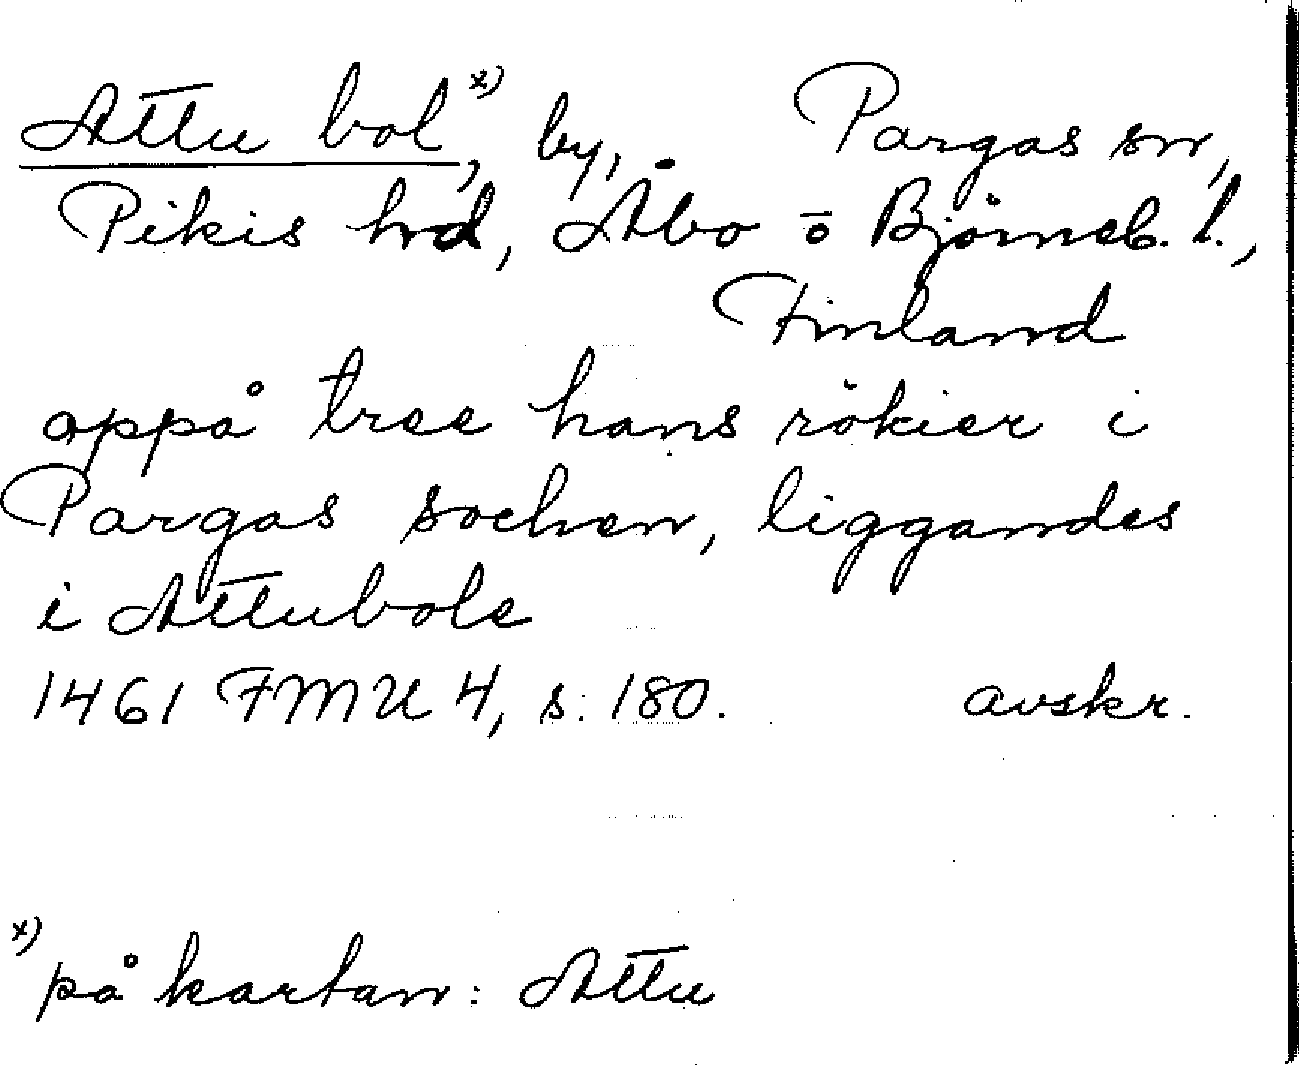 Attu bol x), by, Pargas sn,
Pikis hd, Åbo o Björneb. l.,
Finland
oppå tree hans rökier i
Pargas sochen, liggandes
i Attubole
1461 FMU 4, s. 180. avskr.
x) på kartan: Attu